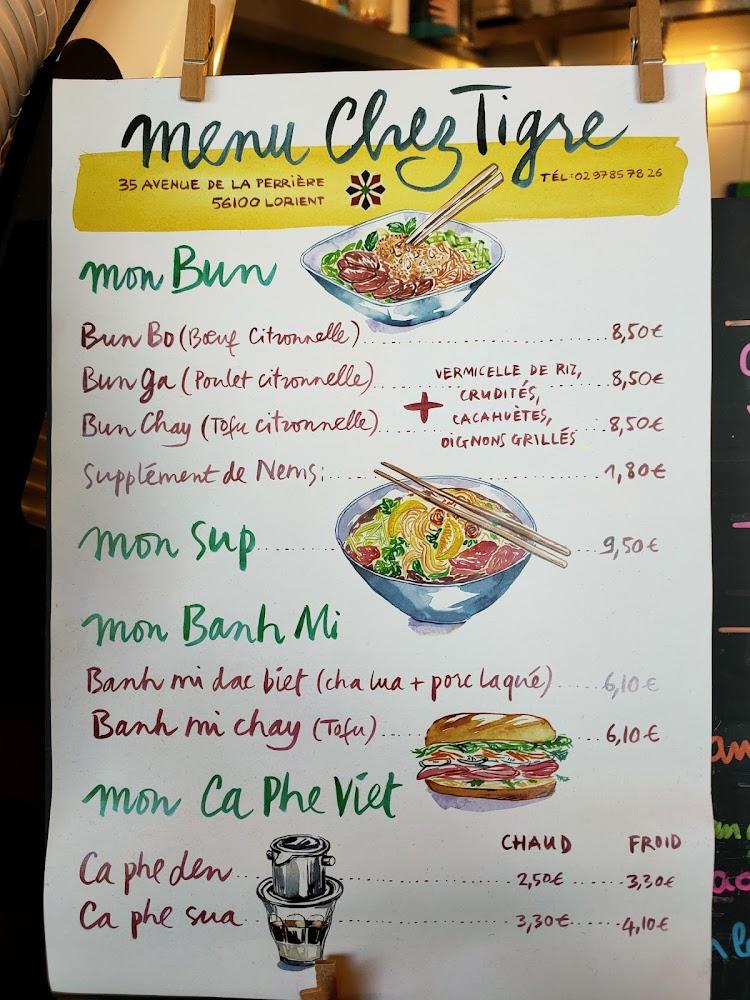 menu Chez Tigre
35 AVENUE DE LA PERRIÈRE
56100 LORIENT
TÉL: 02 97 85 78 26
mon Bun
Bun Bo (Bœuf Citronnelle) 8,50€
Bun Ga (Poulet citronnelle) 8,50€
Bun Chay (Tofu citronnelle) 8,50€
+ VERMICELLE DE RIZ,
CRUDITÉS,
CACAHUÈTES,
OIGNONS GRILLÉS
Supplément de Nems: 1,80€
mon Sup 9,50€
mon Banh Mi
Banh mi dac biet (cha lua + porc laqué) 6,10€
Banh mi chay (Tofu) 6,10€
mon Ca Phe Viet
CHAUD FROID
Ca phe den 2,50€ 3,30€
Ca phe sua 3,30€ 4,10€